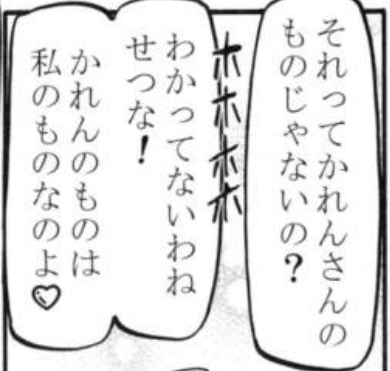 それってかれんさんの
ものじゃないの？
ホホホホ
わかってないわね
せつな！
かれんのものは
私のものなのよ♡